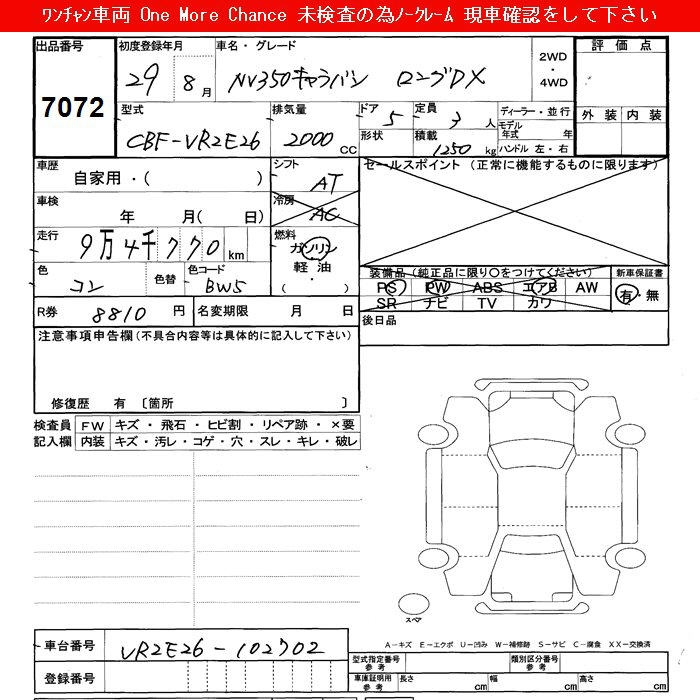 ﾜﾝﾁｬﾝ車両 One More Chance 未検査の為ﾉｰｸﾚｰﾑ 現車確認をして下さい
出品番号 初度登録年月 車名・グレード 2WD・4WD 評価点
7072 29 8月 NV350キャラバン ロングDX
外装 内装
型式 排気量 ドア 定員 ディーラー・並行
CBF-VR2E26 2000cc 5 3人 モデル年式 年
形状 積載 1250kg ハンドル 左・右
車歴 自家用・( ) シフト AT セールスポイント (正常に機能するものに限ります)
車検 年 月( 日) 冷房 AC
走行 9万4千770km 燃料 ガソリン
軽油・( )
色 コン 色替 色コード BW5
装備品 (純正品に限り○をつけてください) 新車保証書
PS PW ABS エアB AW 有・無
SR ナビ TV カワ
R券 8810円 名変期限 月 日 後日品
注意事項申告欄(不具合内容等は具体的に記入して下さい)
修復歴 有 〔箇所 〕
検査員 FW キズ・飛石・ヒビ割・リペア跡・×要
記入欄 内装 キズ・汚レ・コゲ・穴・スレ・キレ・破レ
スペア
A-キズ E-エクボ U-凹み W-補修跡 S-サビ C-腐食 XX-交換済
車台番号 VR2E26-102702
型式指定番号 参考 類別区分番号 参考
登録番号 車庫証明用 参考 長さ cm 幅 cm 高さ cm